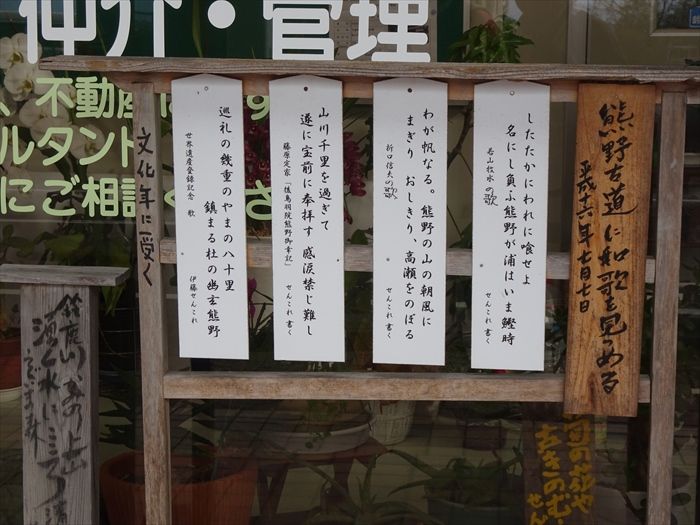 仲介・管理
不動産
ルタント
にご相談
熊野古道に和歌を見つめる
平成十六年七月七日
したたかにわれに喰せよ
名にし負ふ熊野が浦はいま鰹時
若山牧水の歌
せんこれ書く
わが帆なる。熊野の山の朝風に
まぎり おしきり、高瀬をのぼる
折口信夫の歌
せんこれ書く
山川千里を過ぎて
遂に宝前に奉拝す 感涙禁じ難し
藤原定家「後鳥羽院熊野御幸記」
せんこれ書く
巡礼の幾重のやまの八十里
鎮まる杜の幽玄熊野
世界遺産登録記念 歌
伊藤せんこれ
文化年に一受く
鈴鹿山